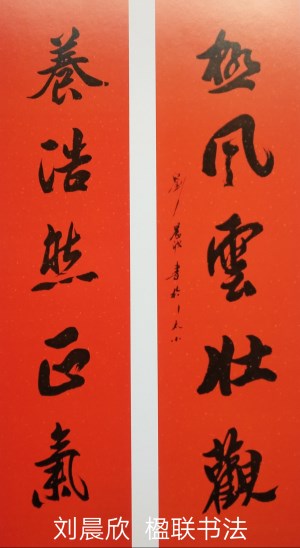 極風雲壯觀
養浩然正氣
刘晨欣 楹联书法